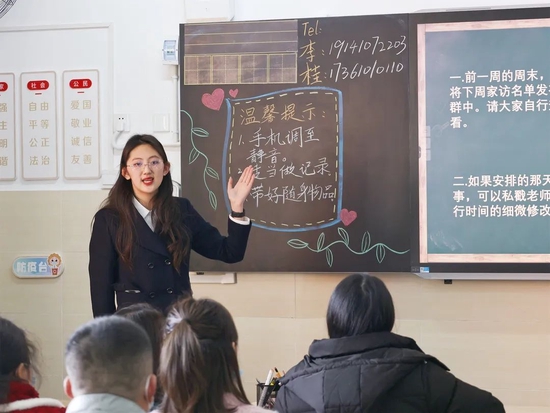 Tel:
李:19141072203
桂:17361010110
温馨提示:
1.手机调至
静音。
适当做记录
带好随身物品
一.前一周的周末,
将下周家访名单发
群中。请大家自行
看。
二.如果安排的那天
事,可以私戳老师
行时间的细微修改
国家
社会
自由
平等
公正
法治
公民
爱国
敬业
诚信
友善
防疫台